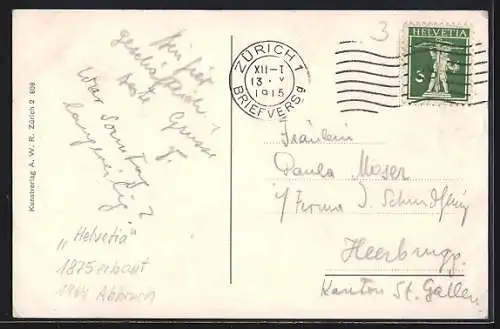 Kunstverlag A. W. R. Zürich 2 808
Bin hier
geschäftlich?
beste Grüsse
J.
War Sonntag
langweilig?
„Helvetia"
1875 erbaut
1964 Abbruch
ZÜRICH 1
XII-1
13. V
1915
BRIEFVERSG
HELVETIA
5
3
Fräulein
Paula Moser
p/ Firma J. Schmidheiny
Heerbrugg.
Kanton St. Gallen